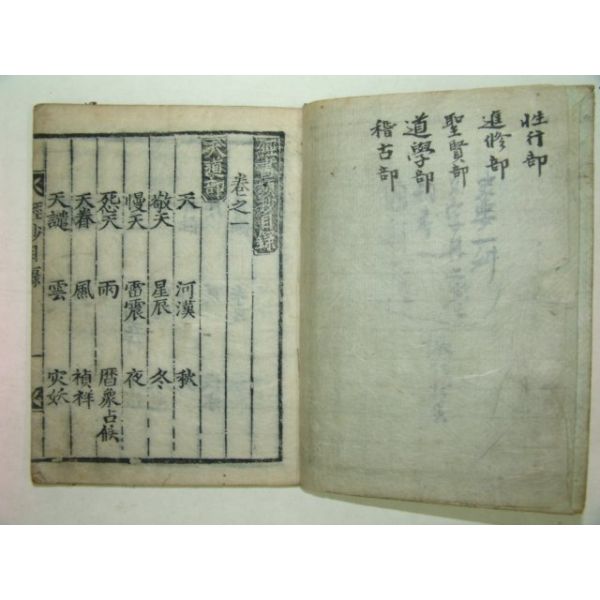 性行部
進修部
聖賢部
道學部
稽古部
經書類抄目錄
卷之一
天道部
天 河漢 秋
敬天 星辰 冬
慢天 雷震 夜
怨天 雨 曆象占候
天眷 風 禎祥
天譴 雲 灾妖
類抄目錄 一